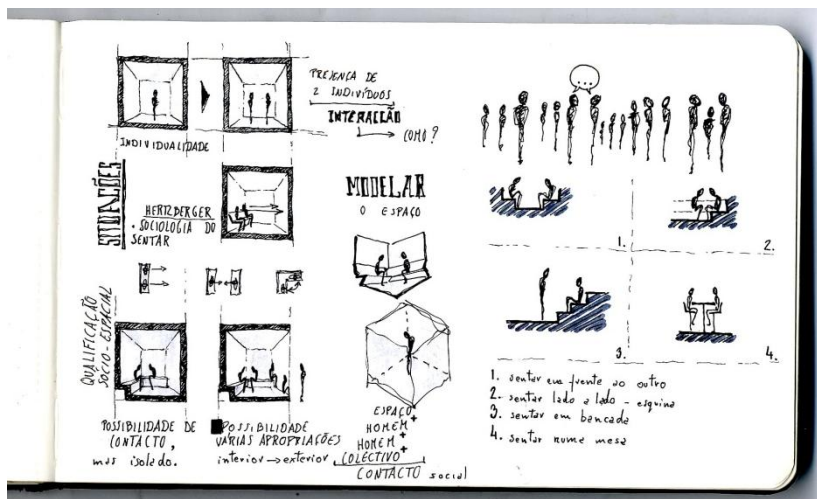 PRESENÇA DE
2 INDIVÍDUOS
INTERACÇÃO
COMO?
INDIVIDUALIDADE
SITUAÇÕES
HERTZBERGER
• SOCIOLOGIA DO
SENTAR
MODELAR
O ESPAÇO
QUALIFICAÇÃO
SOCIO-ESPACIAL
POSSIBILIDADE DE
CONTACTO,
mas isolado.
POSSIBILIDADE
VÁRIAS APROPRIAÇÕES
interior → exterior
ESPAÇO +
HOMEM +
HOMEM +
COLECTIVO
CONTACTO social
...
1.
2.
3.
4.
1. sentar em frente ao outro
2. sentar lado a lado - esquina
3. sentar em bancada
4. sentar numa mesa